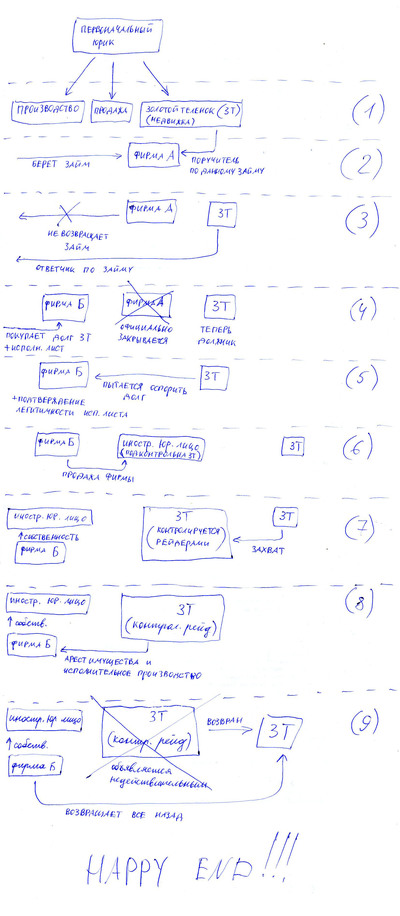 ПЕРВОНАЧАЛЬНЫЙ
ЮРИК
ПРОИЗВОДСТВО
ПРОДАЖА
ЗОЛОТОЙ ТЕЛЕНОК (ЗТ)
(НЕДВИЖКА)
(1)
БЕРЕТ ЗАЙМ
ФИРМА А
ПОРУЧИТЕЛЬ
ПО ДАННОМУ ЗАЙМУ
(2)
ФИРМА А
ЗТ
(3)
НЕ ВОЗВРАЩАЕТ
ЗАЙМ
ОТВЕТЧИК ПО ЗАЙМУ
ФИРМА Б
ФИРМА А
ЗТ
(4)
ПОКУПАЕТ ДОЛГ ЗТ
+ ИСПОЛН. ЛИСТ
ОФИЦИАЛЬНО
ЗАКРЫВАЕТСЯ
ТЕПЕРЬ
ДОЛЖНИК
ФИРМА Б
ПЫТАЕТСЯ ОСПОРИТЬ
ДОЛГ
ЗТ
(5)
+ПОДТВЕРЖДЕНИЕ
ЛЕГИТИМНОСТИ ИСП. ЛИСТА
ФИРМА Б
ИНОСТР. ЮР. ЛИЦО
(ПОДКОНТРОЛЬНА ЗТ)
ЗТ
(6)
ПРОДАЖА ФИРМЫ
ИНОСТР. ЮР. ЛИЦО
СОБСТВЕННОСТЬ
ФИРМА Б
ЗТ
(КОНТРОЛИРУЕТСЯ
РЕЙДЕРАМИ)
ЗТ
ЗАХВАТ
(7)
ИНОСТР. ЮР. ЛИЦО
собств.
ФИРМА Б
ЗТ
(контрол. рейд)
(8)
АРЕСТ ИМУЩЕСТВА И
ИСПОЛНИТЕЛЬНОЕ ПРОИЗВОДСТВО
ИНОСТР. ЮР. ЛИЦО
собств.
ФИРМА Б
ЗТ
(контр. рейд)
объявляется
недействительным
ВОЗВРАТ
ЗТ
(9)
ВОЗВРАЩАЕТ ВСЕ НАЗАД
HAPPY END!!!